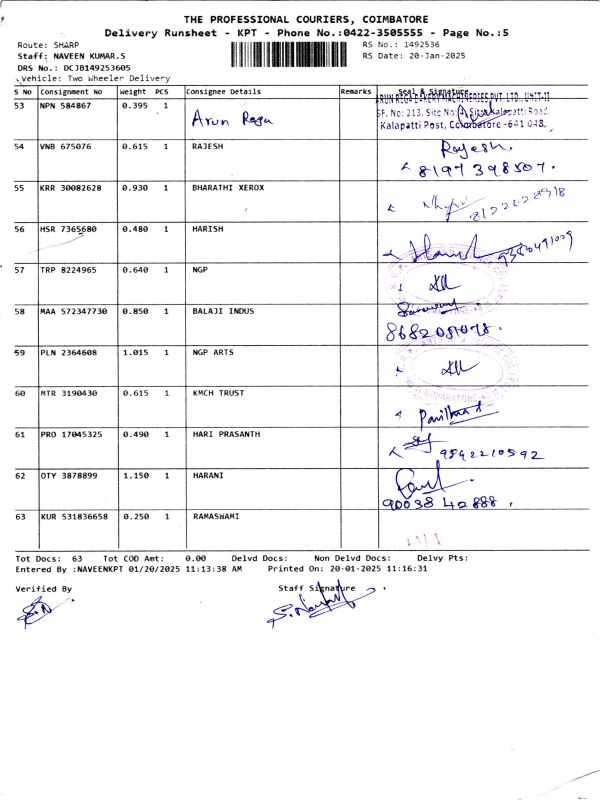 THE PROFESSIONAL COURIERS, COIMBATORE
Delivery Runsheet - KPT - Phone No.:0422-3505555 - Page No.:5
Route: SHARP
RS No.: 1492536
Staff: NAVEEN KUMAR.S
RS Date: 20-Jan-2025
DRS No.: DCJB149253605
Vehicle: Two Wheeler Delivery
S No Consignment No Weight PCS Consignee Details Remarks Seal & Signature
53 NPN 584867 0.395 1 Arun Rega
ARUN REGA BAKERY MACHINERIES PVT. LTD., UNIT-II
SF. No: 213, Site No: Kalapatti Road,
Kalapatti Post, Coimbatore - 641 048.
54 VNB 675076 0.615 1 RAJESH Rajesh.
8197398507.
55 KRR 30082628 0.930 1 BHARATHI XEROX
56 HSR 7365680 0.480 1 HARISH
57 TRP 8224965 0.640 1 NGP
58 MAA 572347730 0.850 1 BALAJI INDUS
59 PLN 2364608 1.015 1 NGP ARTS
60 MTR 3190430 0.615 1 KMCH TRUST
61 PRO 17045325 0.490 1 HARI PRASANTH
9842210592
62 OTY 3878899 1.150 1 HARANI
90038 42888.
63 KUR 531836658 0.250 1 RAMASWAMI
Tot Docs: 63 Tot COD Amt: 0.00 Delvd Docs: Non Delvd Docs: Delvy Pts:
Entered By :NAVEENKPT 01/20/2025 11:13:38 AM Printed On: 20-01-2025 11:16:31
Verified By Staff Signature